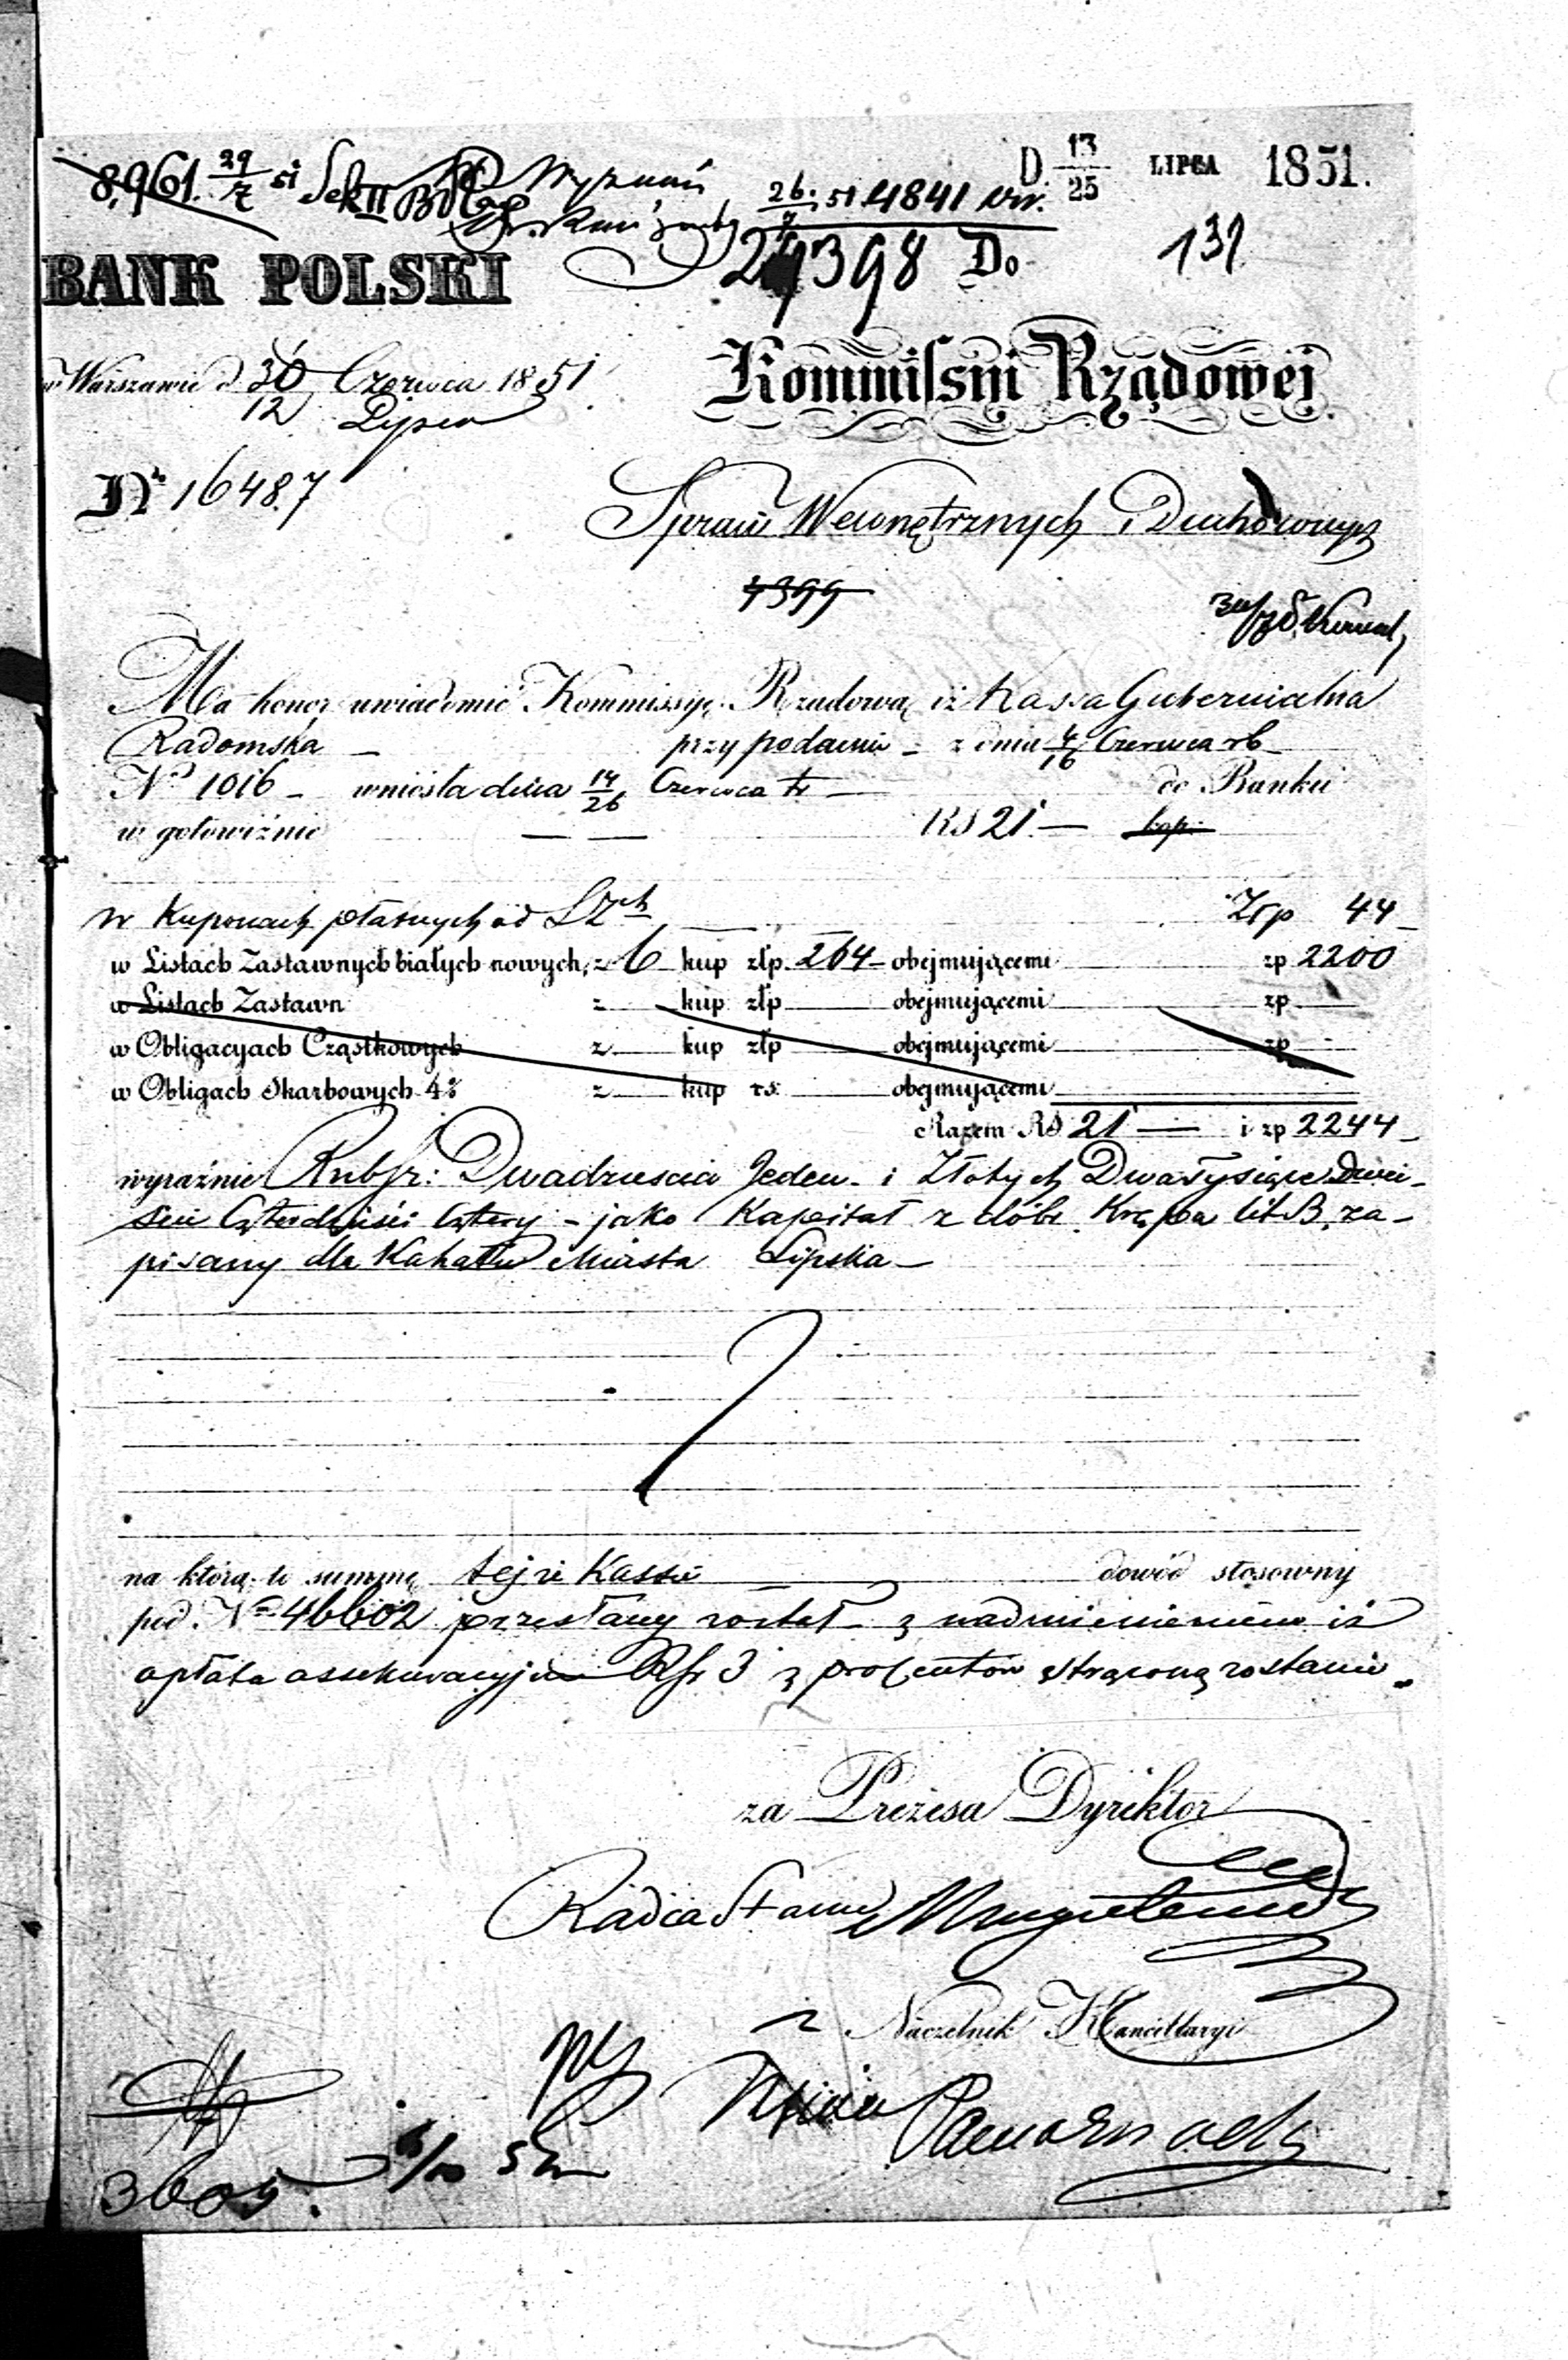 8,961. 29/7 51 Sek II
D. 13/25 LIPCA 1851.
26/7 51 4841
29398 Do 131
BANK POLSKI
w Warszawie d. 30/12 Czerwca/Lipca 1851
Kommissyi Rządowej
Nr 16487
Spraw Wewnętrznych i Duchownych
4399
Ma honor uwiadomić Kommissyę Rządową iż Kassa Gubernialna
Radomska — przy podaniu – z dnia 4/16 Czerwca rb
No 1016 – wniosła dnia 14/26 Czerwca tr — do Banku
w gotowiźnie — — RS 21. — kop:
w Kuponach płatnych od LZch — Złp 44
w Listach Zastawnych białych nowych, z 6 kup złp. 264 obejmującemi zp 2200
w Listach Zastawn z kup złp obejmującemi zp
w Obligacyach Cząstkowych z kup złp obejmującemi zp
w Obligach Skarbowych 4% z kup rs. obejmującemi
Razem RS 21 — i zp 2244
wyraźnie Rubsr: Dwadzieścia Jeden – i Złotych Dwatysiące Dwie-
ście Czterdzieści Cztery – jako Kapitał z dóbr Krępa lit B, za-
pisany dla Kahału Miasta Lipska –
na którą to summę tejże Kassie — dowód stosowny
pod No 46602 przesłany został z nadmienieniem iż
opłata assekuracyjna RSr 3 z procentów strąconą zostanie.
za Prezesa Dyrektor
Radca Stanu
Naczelnik Kancellaryi
3605.